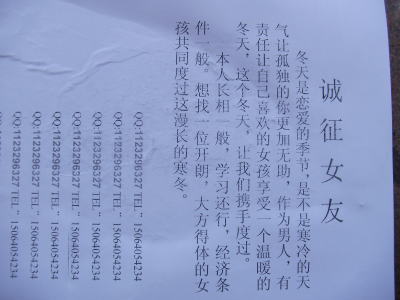 诚征女友
冬天是恋爱的季节，是不是寒冷的天
气让孤独的你更加无助，作为男人，有
责任让自己喜欢的女孩享受一个温暖的
冬天，这个冬天，让我们携手度过。
本人长相一般，学习还行，经济条
件一般。想找一位开朗，大方得体的女
孩共同度过这漫长的寒冬。
QQ:1123296327 TEL：15064054234
QQ:1123296327 TEL：15064054234
QQ:1123296327 TEL：15064054234
QQ:1123296327 TEL：15064054234
QQ:1123296327 TEL：15064054234
QQ:1123296327 TEL：15064054234
QQ:1123296327 TEL：15064054234
QQ:1123296327 TEL：15064054234